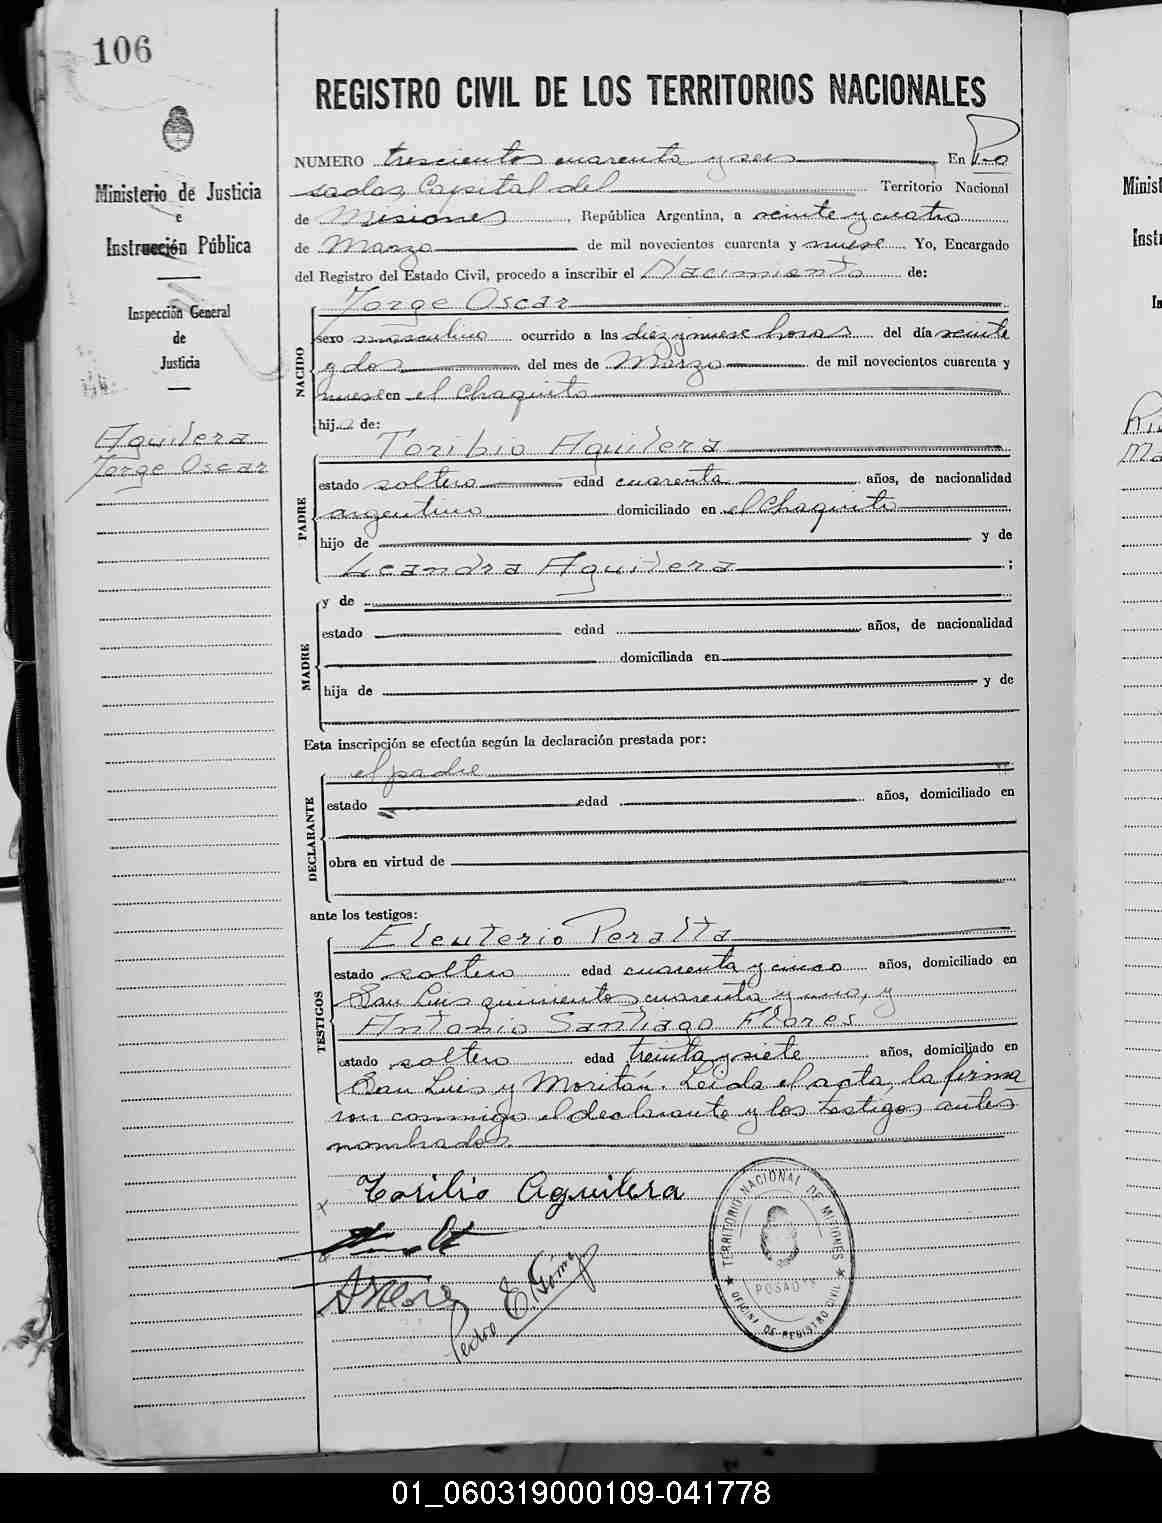 106
Ministerio de Justicia
e
Instrucción Pública
Inspección General
de
Justicia
Aguilera
Jorge Oscar
REGISTRO CIVIL DE LOS TERRITORIOS NACIONALES
NUMERO trescientos cuarenta y seis En Po
sadas, Capital del Territorio Nacional
de Misiones, República Argentina, a veinte y cuatro
de Marzo de mil novecientos cuarenta y nueve Yo, Encargado
del Registro del Estado Civil, procedo a inscribir el Nacimiento de:
NACIDO
Jorge Oscar
sexo masculino ocurrido a las diez y nueve horas del día veinte
y dos del mes de Marzo de mil novecientos cuarenta y
nueve en el Chaquito
hijo de:
PADRE
Toribio Aguilera
estado soltero edad cuarenta años, de nacionalidad
argentino domiciliado en el Chaquito
hijo de y de
Leandra Aguilera ;
MADRE
y de
estado edad años, de nacionalidad
domiciliada en
hija de y de
Esta inscripción se efectúa según la declaración prestada por:
DECLARANTE
el padre
estado edad años, domiciliado en
obra en virtud de
ante los testigos:
TESTIGOS
Eleuterio Peralta,
estado soltero edad cuarenta y cinco años, domiciliado en
San Luis quinientos cuarenta y uno, y
Antonio Santiago Flores
estado soltero edad treinta y siete años, domiciliado en
San Luis y Moritán. Leida el acta, la firma
ron conmigo el declarante y los testigos antes
nombrados.
Toribio Aguilera
Pedro E. Gómez
TERRITORIO NACIONAL DE MISIONES
POSADAS
OFICINA DE REGISTRO CIVIL
Minist
Inst
01_060319000109-041778